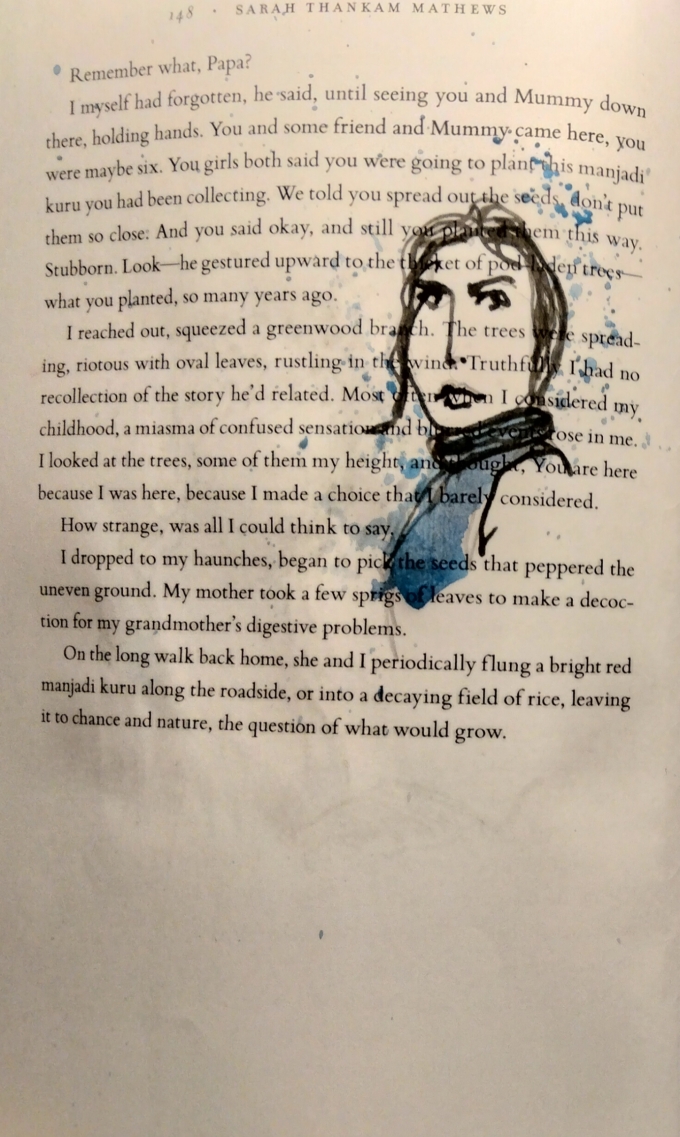 148 · SARAH THANKAM MATHEWS
Remember what, Papa?
I myself had forgotten, he said, until seeing you and Mummy down
there, holding hands. You and some friend and Mummy came here, you
were maybe six. You girls both said you were going to plant this manjadi
kuru you had been collecting. We told you spread out the seeds, don't put
them so close. And you said okay, and still you planted them this way.
Stubborn. Look—he gestured upward to the thicket of pod-laden trees—
what you planted, so many years ago.
I reached out, squeezed a greenwood branch. The trees were spread-
ing, riotous with oval leaves, rustling in the wind. Truthfully, I had no
recollection of the story he'd related. Most often when I considered my
childhood, a miasma of confused sensation and blurred events rose in me.
I looked at the trees, some of them my height, and thought, You are here
because I was here, because I made a choice that I barely considered.
How strange, was all I could think to say.
I dropped to my haunches, began to pick the seeds that peppered the
uneven ground. My mother took a few sprigs of leaves to make a decoc-
tion for my grandmother's digestive problems.
On the long walk back home, she and I periodically flung a bright red
manjadi kuru along the roadside, or into a decaying field of rice, leaving
it to chance and nature, the question of what would grow.